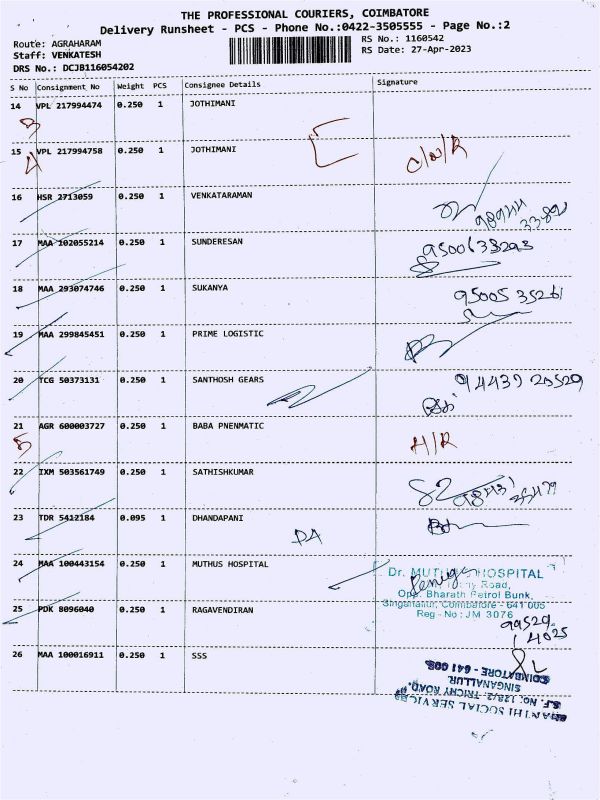 THE PROFESSIONAL COURIERS, COIMBATORE
Delivery Runsheet - PCS - Phone No.:0422-3505555 - Page No.:2
Route: AGRAHARAM RS No.: 1160542
Staff: VENKATESH RS Date: 27-Apr-2023
DRS No.: DCJB116054202
S No Consignment No Weight PCS Consignee Details Signature
14 VPL 217994474 0.250 1 JOTHIMANI
3
15 VPL 217994758 0.250 1 JOTHIMANI
4 C/N/R
16 HSR 2713059 0.250 1 VENKATARAMAN
17 MAA 102055214 0.250 1 SUNDERESAN
9500633293
18 MAA 293074746 0.250 1 SUKANYA
95005 35261
19 MAA 299845451 0.250 1 PRIME LOGISTIC
20 TCG 50373131 0.250 1 SANTHOSH GEARS
94439 20529
21 AGR 600003727 0.250 1 BABA PNENMATIC
5 H/R
22 IXM 503561749 0.250 1 SATHISHKUMAR
23 TDR 5412184 0.095 1 DHANDAPANI
24 MAA 100443154 0.250 1 MUTHUS HOSPITAL
Dr. MUTHUS HOSPITAL
Road,
Opp. Bharath Petrol Bunk,
Singanallur, Coimbatore - 641 005
Reg - No : JM 3076
25 PDK 8096040 0.250 1 RAGAVENDIRAN
99529
14025
26 MAA 100016911 0.250 1 SSS
SHANTHI SOCIAL SERVICES
S.F. No: 128/2, TRICHY ROAD,
SINGANALLUR,
COIMBATORE - 641 005